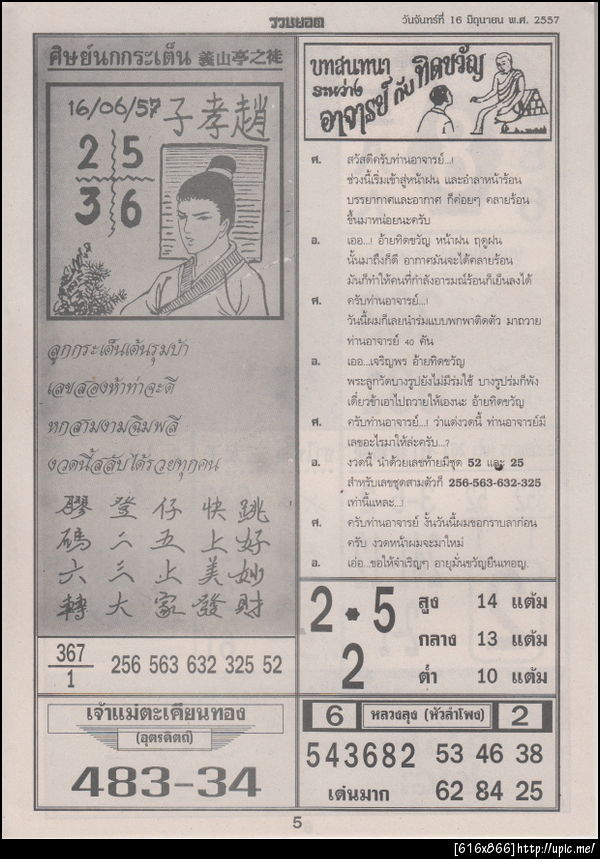 รวมยอด
วันจันทร์ที่ 16 มิถุนายน พ.ศ. 2557
ศิษย์นกกระเต็น 義山亭之徒
16/06/57 子孝趙
2 5
3 6
ลูกกระเด็นเด้นรุมป้า
เลขสองห้าท่าจะดี
หกสามงามฉิมพลี
งวดนี้สลับได้รวยทุกคน
膠 登 仔 快 跳
碼 二 五 上 好
六 三 止 美 妙
轉 大 家 發 財
367
1
256 563 632 325 52
เจ้าแม่ตะเคียนทอง
(อุตรดิตถ์)
483-34
บทสนทนา
ระหว่าง
อาจารย์ กับ ทิดขวัญ
ศ. สวัสดีครับท่านอาจารย์...!
ช่วงนี้เริ่มเข้าสู่หน้าฝน และอำลาหน้าร้อน
บรรยากาศและอากาศ ก็ค่อยๆ คลายร้อน
ขึ้นมาหน่อยนะครับ
อ. เออ...! อ้ายทิดขวัญ หน้าฝน ฤดูฝน
นั้นมาถึงก็ดี อากาศมันจะได้คลายร้อน
มันก็ทำให้คนที่กำลังอารมณ์ร้อนก็เย็นลงได้
ศ. ครับท่านอาจารย์...!
วันนี้ผมก็เลยนำร่มแบบพกพาติดตัว มาถวาย
ท่านอาจารย์ 40 คัน
อ. เออ...เจริญพร อ้ายทิดขวัญ
พระลูกวัดบางรูปยังไม่มีร่มใช้ บางรูปร่มก็พัง
เดี๋ยวข้าเอาไปถวายให้เองนะ อ้ายทิดขวัญ
ศ. ครับท่านอาจารย์...! ว่าแต่งวดนี้ ท่านอาจารย์มี
เลขอะไรมาให้ล่ะครับ...?
อ. งวดนี้ น่าด้วยเลขท้ายมีชุด 52 และ 25
สำหรับเลขชุดสามตัวก็ 256-563-632-325
เท่านี้แหละ...!
ศ. ครับท่านอาจารย์ งั้นวันนี้ผมขอกราบลาก่อน
ครับ งวดหน้าผมจะมาใหม่
อ. เอ่อ...ขอให้จำเริญๆ อายุมั่นขวัญยืนเทอญ.
2 • 5
2
สูง 14 แต้ม
กลาง 13 แต้ม
ต่ำ 10 แต้ม
6 หลวงลุง (หัวลำโพง) 2
543682 53 46 38
เด่นมาก 62 84 25
5
[616x866]http://upic.me/